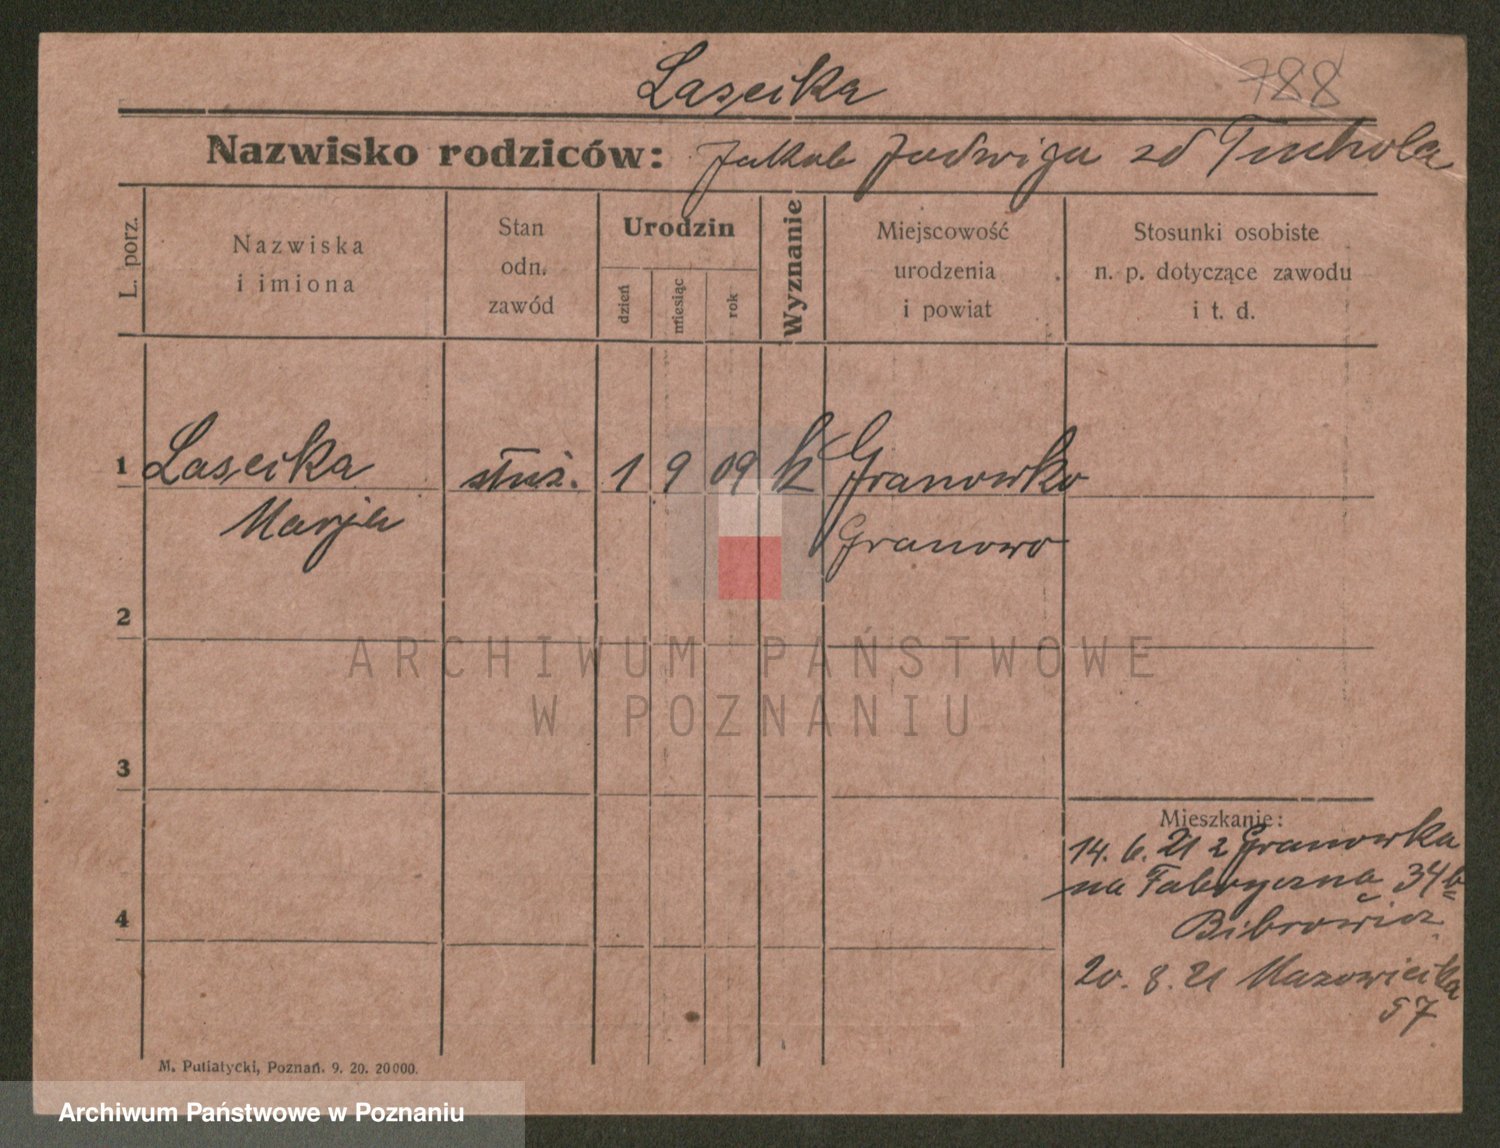 Laseika
788
Nazwisko rodziców: Jakob Jadwiga zd Tuchola
L. porz.
Nazwiska
i imiona
Stan
odn.
zawód
Urodzin
dzień
miesiąc
rok
Wyznanie
Miejscowość
urodzenia
i powiat
Stosunki osobiste
n. p. dotyczące zawodu
i t. d.
1 Laseika służ. 1 9 09 k Granowko
Marja Granowo
2
3
4
Mieszkanie:
14. 6. 21 z Granowka
na Fabryczna 34b
Bibrowicz
20. 8. 21 Mazowiecka
57
M. Putiatycki, Poznań. 9. 20. 20000.
ARCHIWUM PAŃSTWOWE
W POZNANIU
Archiwum Państwowe w Poznaniu